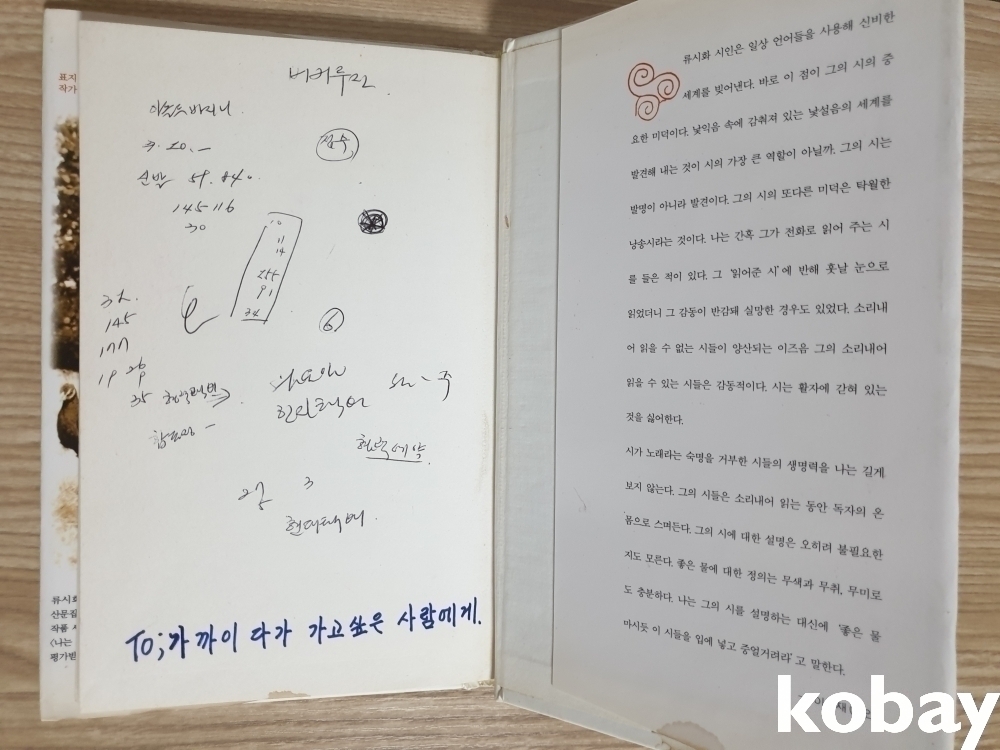 표지
작가
류시화
산문집
작품
〈나는
평가받
버버루만
3. 20. —
신발 59. 840.
145 116
30
점수
10
11
14
255
91
34
6
145
177
19 26
35
화요일
현대택배
TO; 가까이 다가 가고싶은 사람에게.
류시화 시인은 일상 언어들을 사용해 신비한
세계를 빚어낸다. 바로 이 점이 그의 시의 중
요한 미덕이다. 낯익음 속에 감춰져 있는 낯설음의 세계를
발견해 내는 것이 시의 가장 큰 역할이 아닐까. 그의 시는
발명이 아니라 발견이다. 그의 시의 또다른 미덕은 탁월한
낭송시라는 것이다. 나는 간혹 그가 전화로 읽어 주는 시
를 들은 적이 있다. 그 '읽어준 시'에 반해 훗날 눈으로
읽었더니 그 감동이 반감돼 실망한 경우도 있었다. 소리내
어 읽을 수 없는 시들이 양산되는 이즈음 그의 소리내어
읽을 수 있는 시들은 감동적이다. 시는 활자에 갇혀 있는
것을 싫어한다.
시가 노래라는 숙명을 거부한 시들의 생명력을 나는 길게
보지 않는다. 그의 시들은 소리내어 읽는 동안 독자의 온
몸으로 스며든다. 그의 시에 대한 설명은 오히려 불필요한
지도 모른다. 좋은 물에 대한 정의는 무색과 무취, 무미로
도 충분하다. 나는 그의 시를 설명하는 대신에 '좋은 물
마시듯 이 시들을 입에 넣고 중얼거려라'고 말한다.
kobay